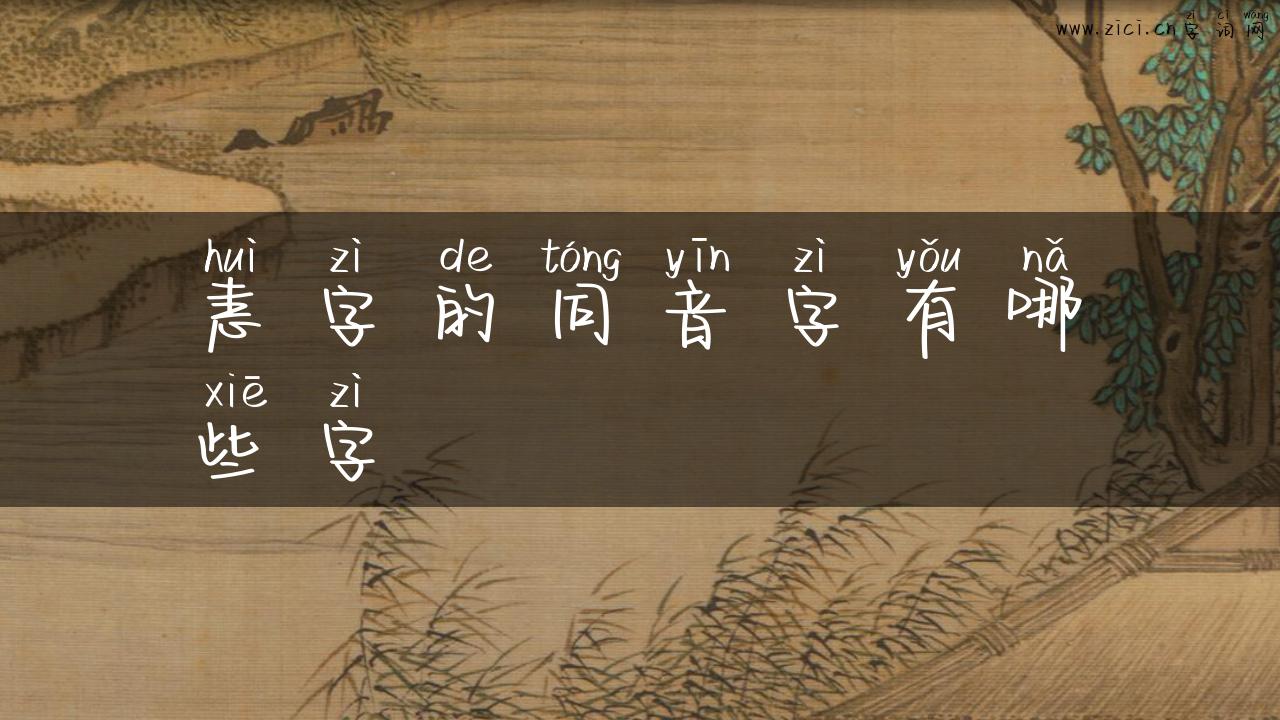 zì cí wǎng
www.zici.cn 字词网
huì zì de tóng yīn zì yǒu nǎ
恚字的同音字有哪
xiē zì
些字